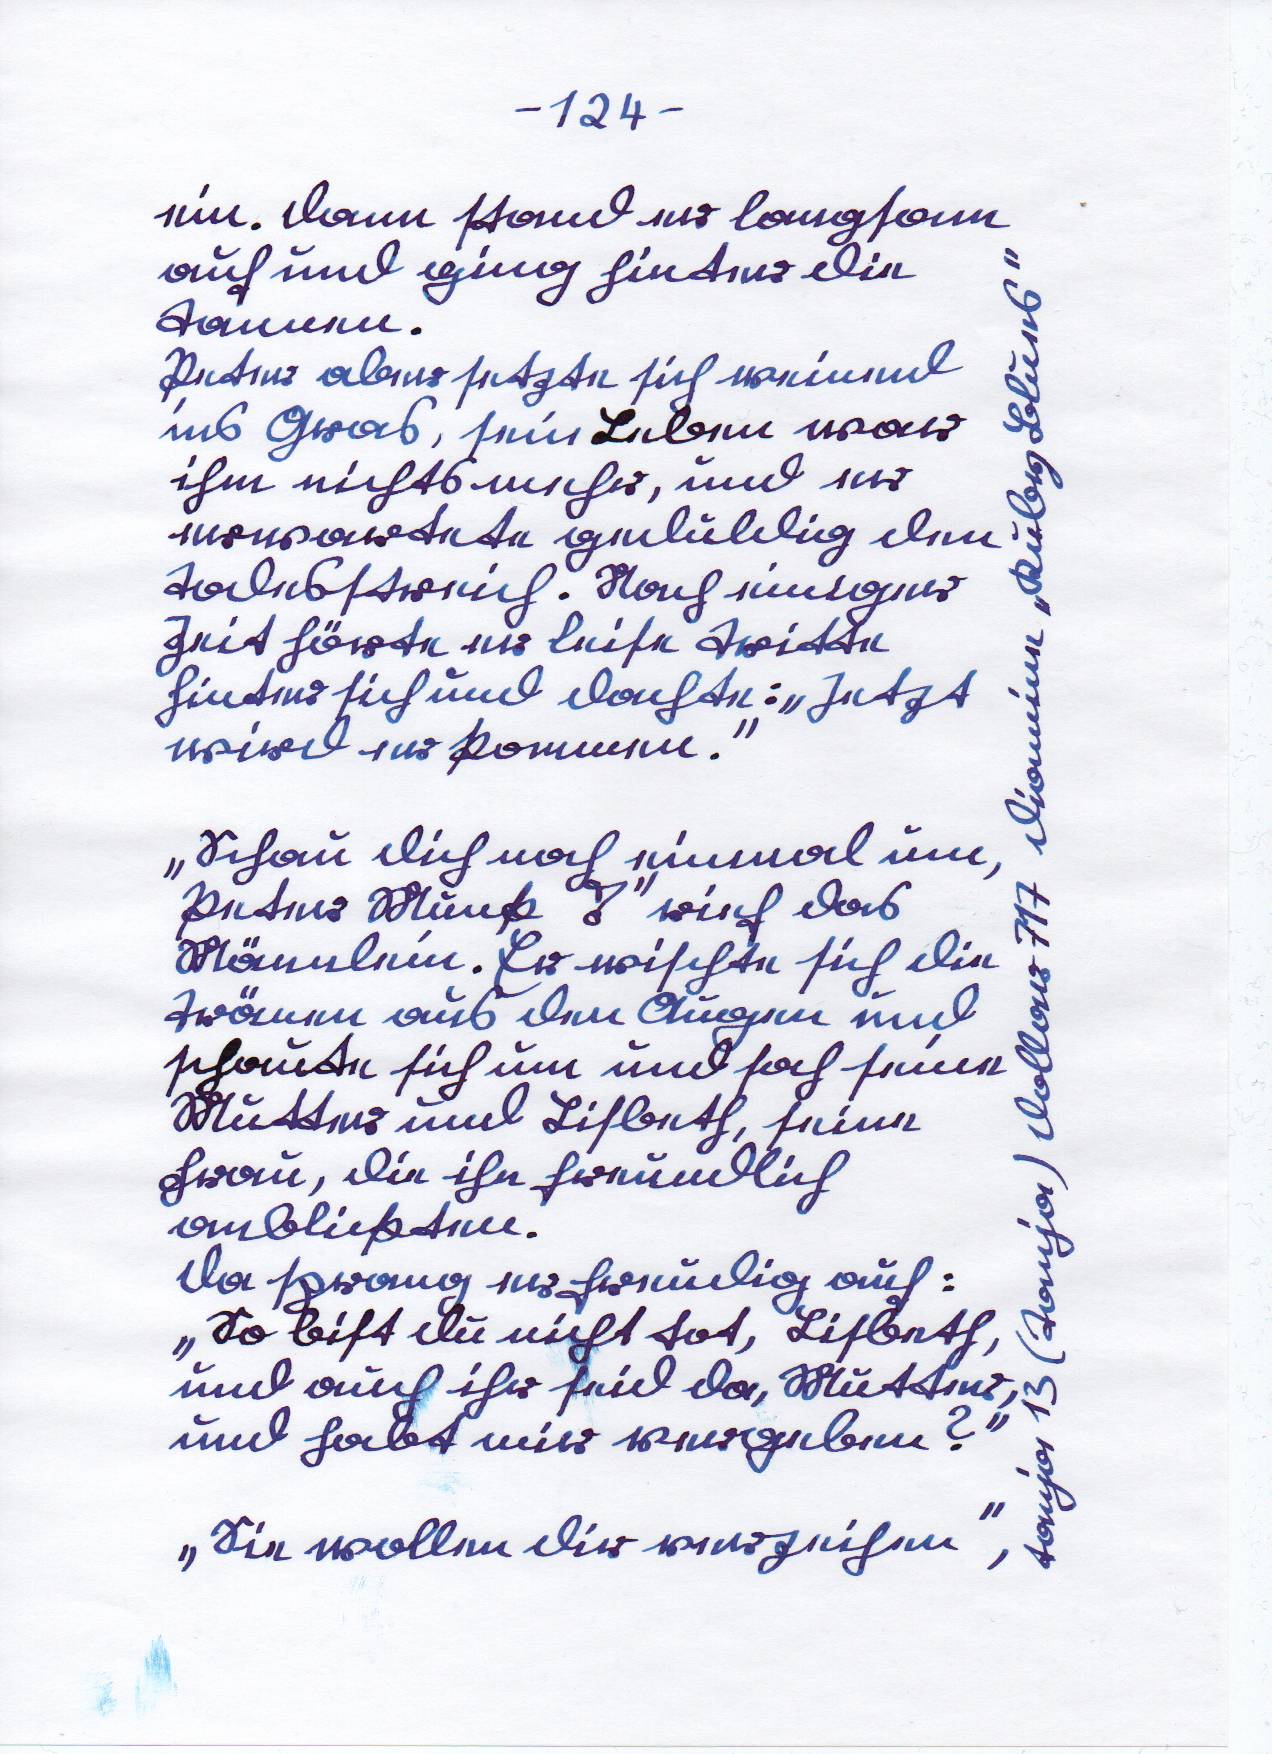 -124-
ein. Dann stand er langsam
auf und ging hinter die
Tannen.
Peter aber setzte sich weinend
ins Gras, sein Leben war
ihm nichts mehr, und er
erwartete geduldig den
Todesstreich. Nach einiger
Zeit hörte er leise Tritte
hinter sich und dachte: „Jetzt
wird er kommen."
„Schau dich noch einmal um,
Peter Munk!" rief das
Männlein. Er wischte sich die
Tränen aus den Augen und
schaute sich um und sah seine
Mutter und Lisbeth, seine
Frau, die ihn freundlich
anblickten.
Da sprang er freudig auf:
„So bist du nicht tot, Lisbeth,
und auch ihr seid da, Mutter,
und habt mir vergeben?"
„Sie wollen dir verzeihen",
Tanja 13 (Tanja) 717 Diamine